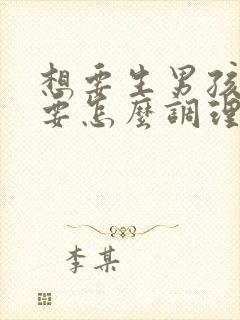 想要生男孩
要怎麼調理
李某